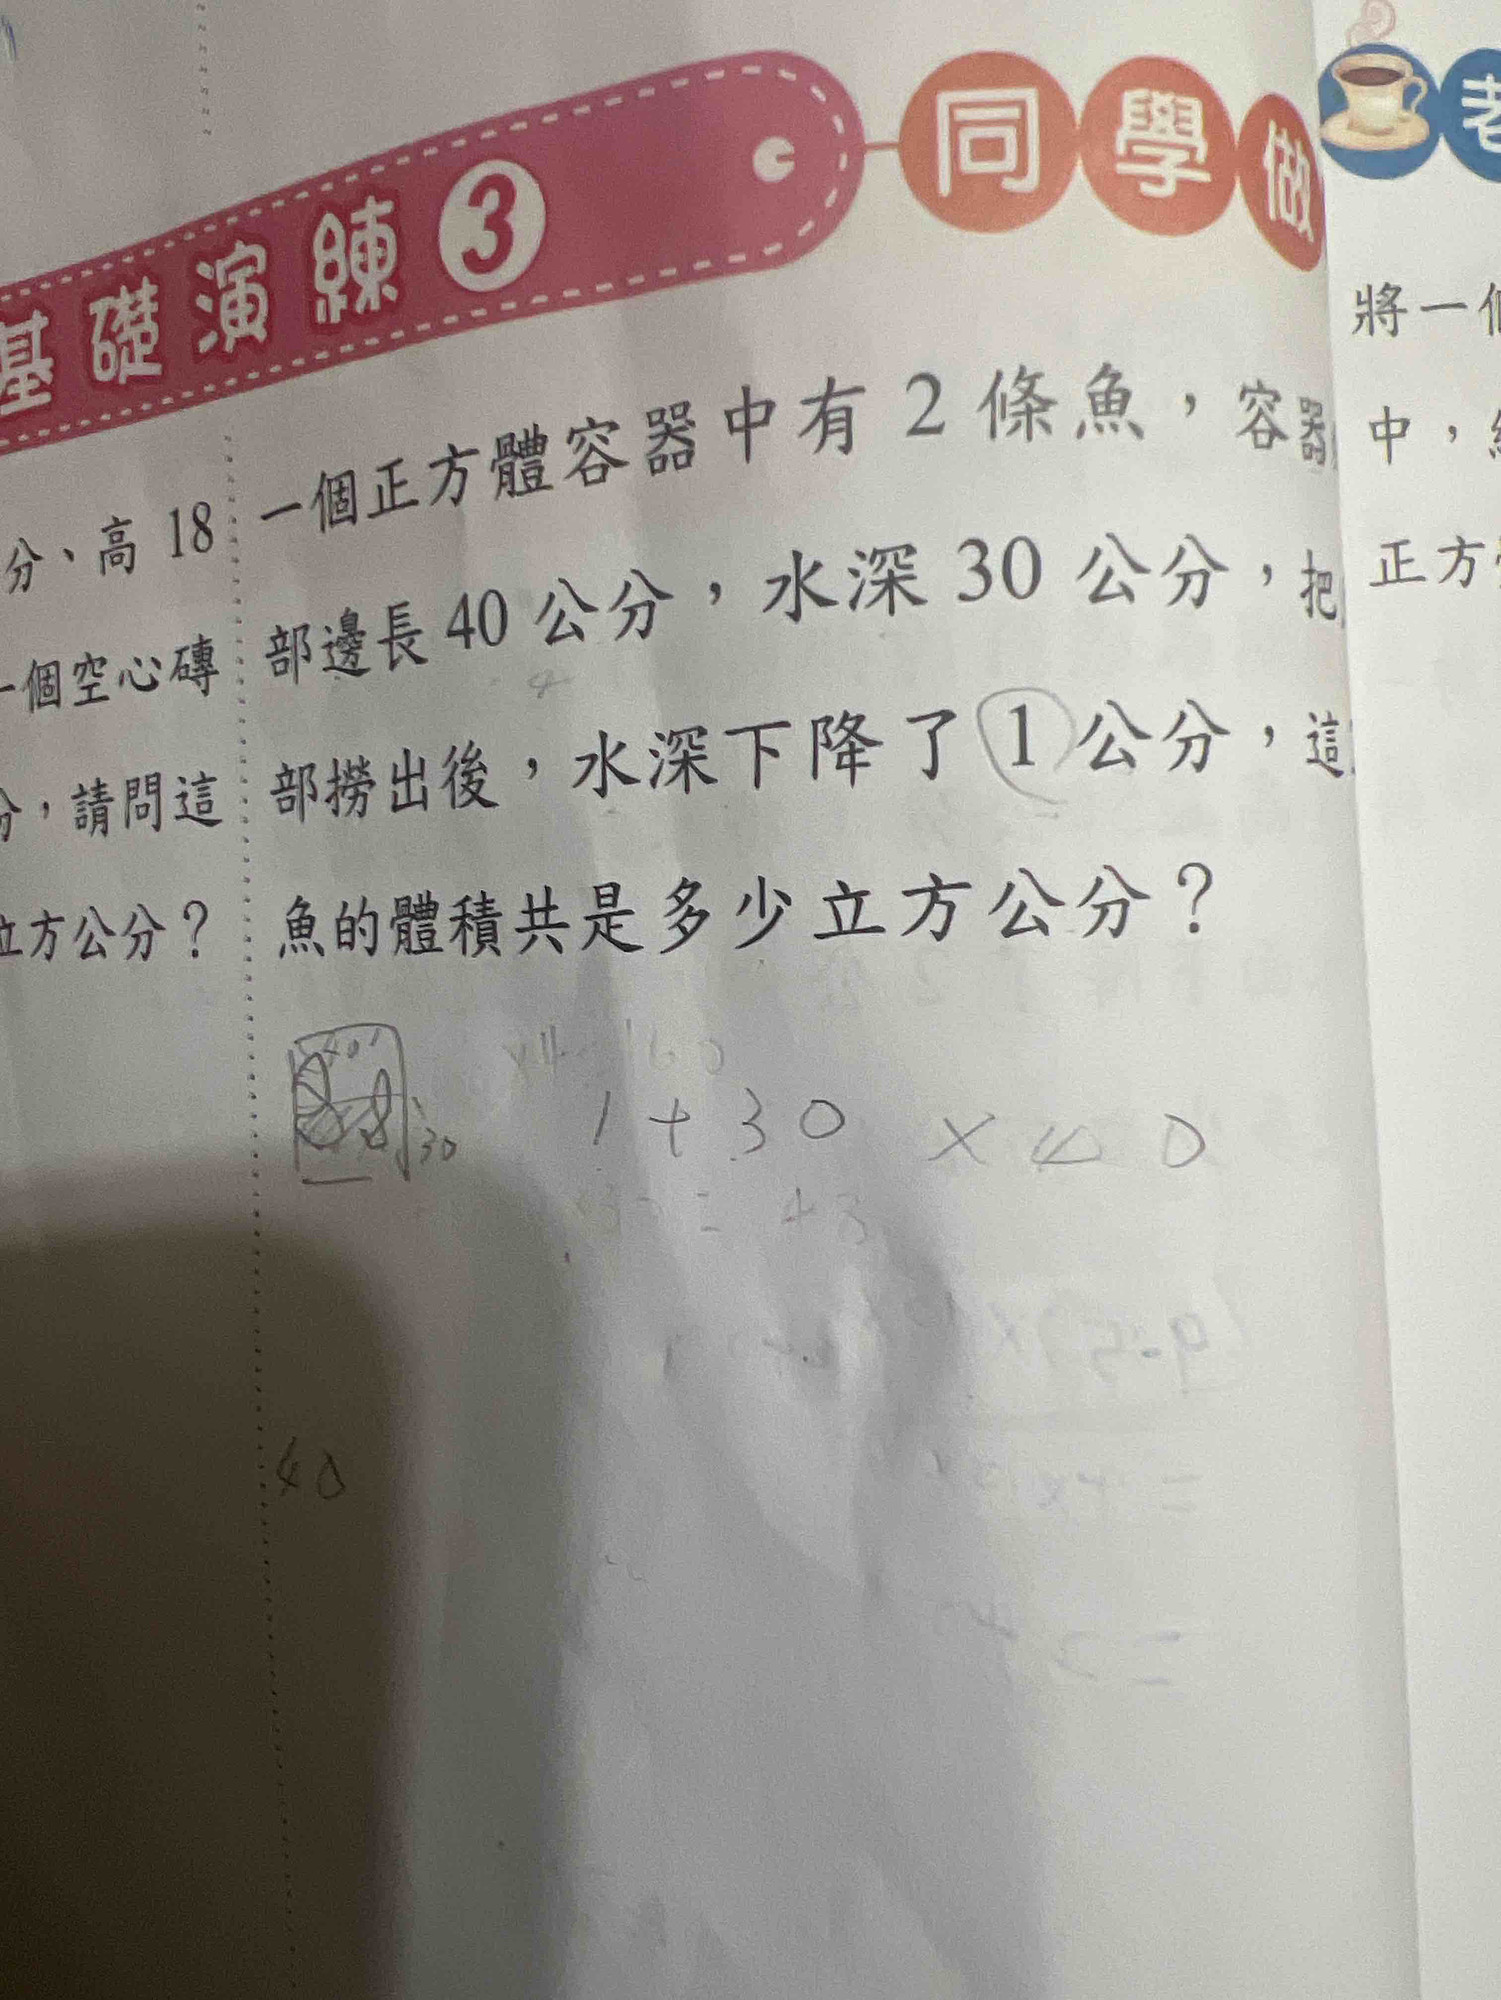 基礎演練3
同學做
老
分、高 18
一個空心磚
分，請問這
立方公分？
一個正方體容器中有 2 條魚，容器
部邊長 40 公分，水深 30 公分，把
部撈出後，水深下降了 1 公分，這
魚的體積共是多少立方公分？
30
1+30 ×40
40
將一個
中，
正方